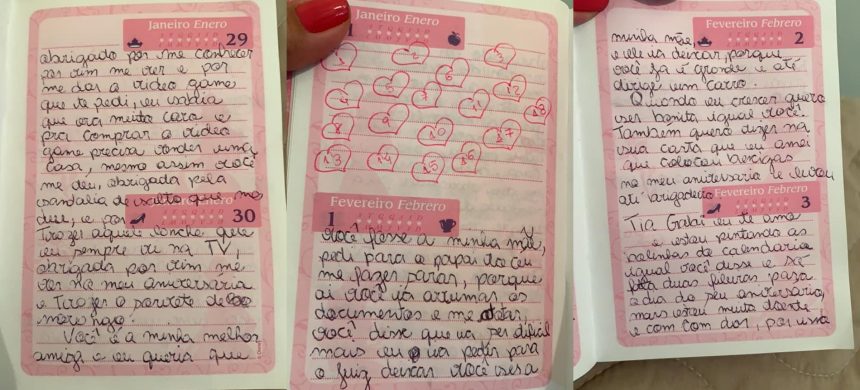 Janeiro Enero
29
obrigado por me conhecer
por vim me ver e por
me dar o video game
que te pedi, eu sabia
que era muito caro e
pra comprar o video
game precisa vender uma
casa, mesmo assim você
me deu, obrigada pela
sandalia de salto que me
deu, e por
Enero
30
Trazer aquele lanche que
eu sempre vi na TV,
obrigada por vim me
ver no meu aniversario
e Trazer o sorvete de
morango.
Você é a minha melhor
amiga e eu queria que
Janeiro Enero
1
1 2 3
4 5 6 7 11 12 18
8 9 10 17
13 14 15 16
Fevereiro Febrero
1
você fosse a minha mãe,
pedi para o papai do ceu
me fazer sarar, porque
ai você vai arrumar os
documentos e me adotar,
você disse que vai ser dificil
mais eu vo pedir para
o juiz deixar você ser a
Fevereiro Febrero
2
minha mãe,
e ele vai deixar, porque
você ja é grande e até
dirige um carro.
Quando eu crescer quero
ser bonita igual você.
Tambem quero dizer na
sua carta que eu amei
que colocou bexigas
no meu aniversario e levou
até brigadeiro
Fevereiro Febrero
3
Tia Gabi eu te amo
e estou pintando as
bolinhas do calendario
igual você disse e só
falta duas fileiras para
o dia do seu aniversario,
mais estou muito doente
e com com dor, por isso